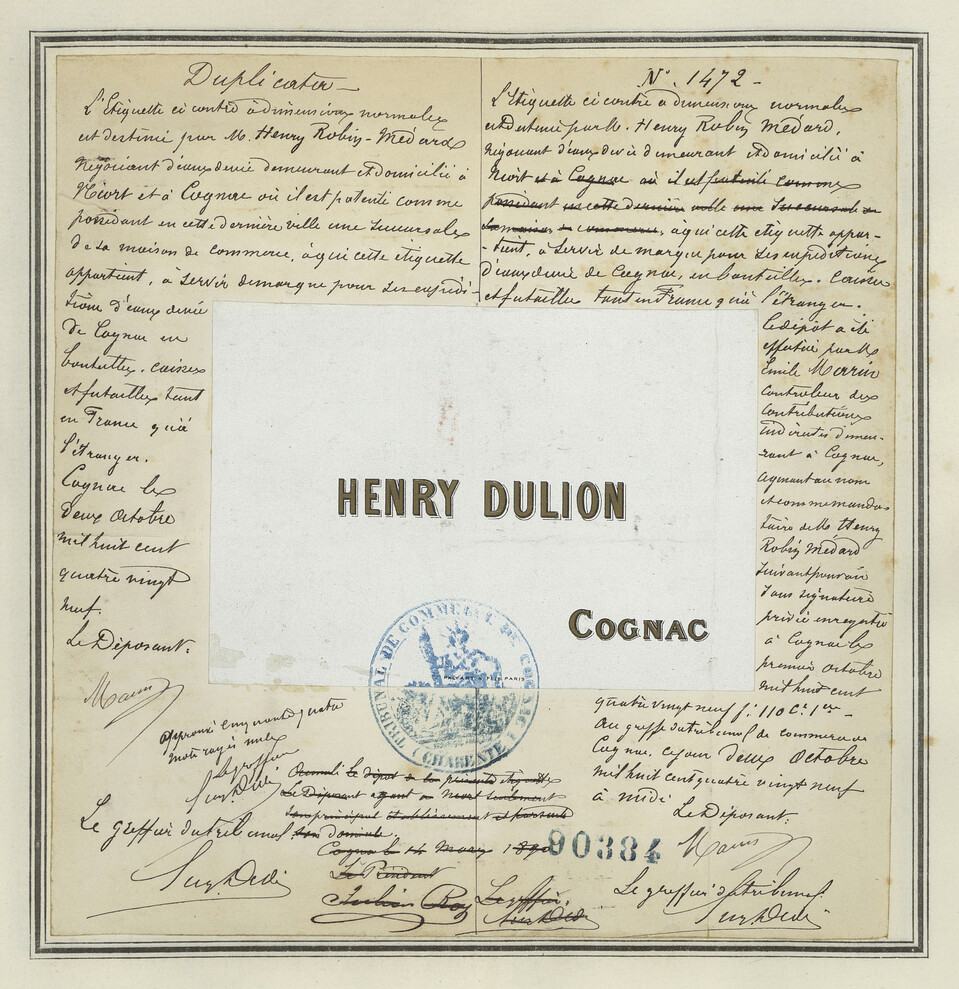 Duplicata
L'Etiquette ci contre à dimensions normales
est destinée par M. Henry Robin-Médard
Négociant d'eaux de vie demeurant et domicilié à
Niort et à Cognac où il est patenté comme
possédant en cette dernière ville une succursale
de sa maison de commerce, à qui cette étiquette
appartient, à servir de marque pour ses expédi-
tions d'eaux de vie
de Cognac en
bouteilles, caisses
et futailles tant
en France qu'à
l'étranger.
Cognac le
deux Octobre
mil huit cent
quatre vingt
neuf.
Le Déposant:
approuvé cinquante quatre
mots rayés nuls
Le greffier
Le greffier du tribunal
N° 1472
L'Etiquette ci contre à dimensions normales
est destinée par M. Henry Robin Médard,
Négociant d'eaux de vie demeurant et domicilié à
Niort et à Cognac où il est patenté comme
possédant en cette dernière ville une succursale de
sa maison de commerce, à qui cette étiquette appar-
-tient, à servir de marque pour ses expéditions
d'eaux de vie de Cognac, en bouteilles, caisses
et futailles tant en France qu'à l'étranger.
Le dépôt a été
effectué par M
Emile Morin
contrôleur des
contributions
indirectes demeu-
rant à Cognac,
agissant au nom
et comme manda-
taire de M. Henry
Robin Médard
suivant pouvoir
sous signature
privée enregistré
à Cognac le
premier Octobre
mil huit cent
quatre vingt neuf f. 110 c. 1re
au greffe du tribunal de commerce de
Cognac, ce jour deux Octobre
mil huit cent quatre vingt neuf
à midi
Le Déposant:
Le greffier du tribunal
HENRY DULION
COGNAC
PARIS
TRIBUNAL DE COMMERCE DE COGNAC
(CHARENTE)
Annulé le dépôt de la présente étiquette
Le Déposant ayant à Niort seulement
son principal établissement et
son domicile.
Cognac le 14 Mars 1890
Le Président
Le greffier,
90384